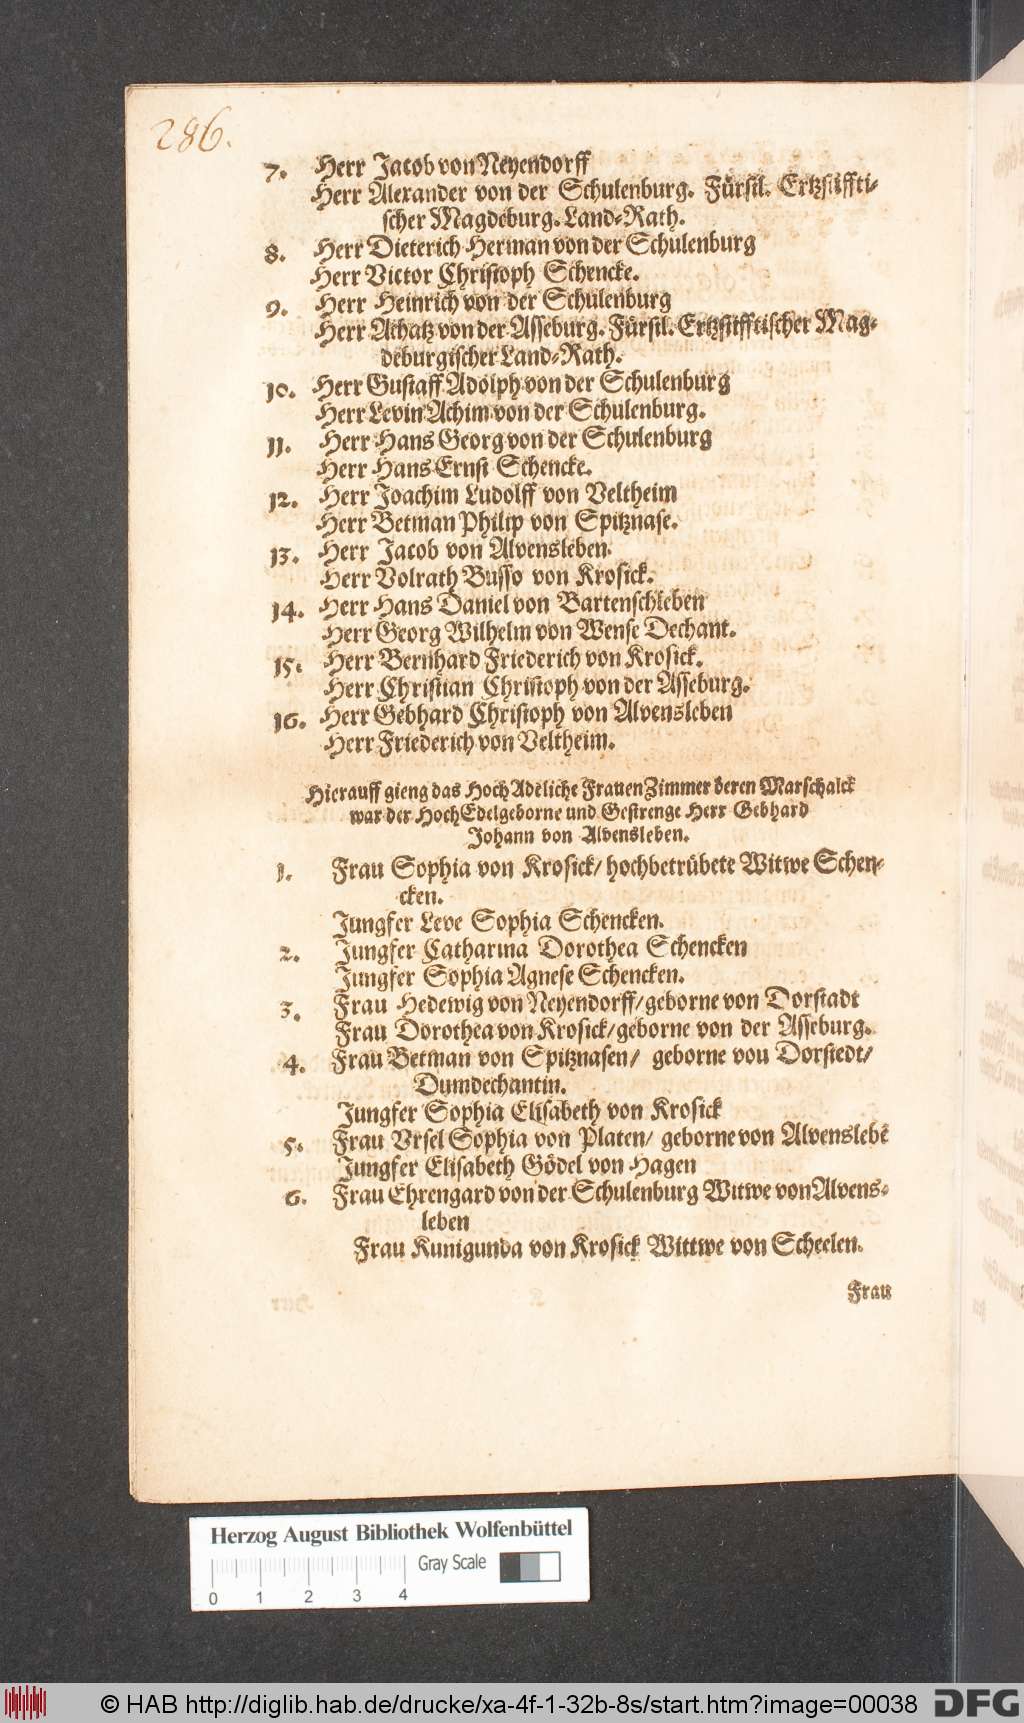 286.
7. Herr Jacob von Neyendorff
Herr Alexander von der Schulenburg. Fürstl. Ertzstiffti-
scher Magdeburg. Land-Rath.
8. Herr Dieterich Herman von der Schulenburg
Herr Victor Christoph Schencke.
9. Herr Heinrich von der Schulenburg
Herr Achatz von der Asseburg. Fürstl. Ertzstifftischer Mag-
deburgischer Land-Rath.
10. Herr Gustaff Adolph von der Schulenburg
Herr Levin Achim von der Schulenburg.
11. Herr Hans Georg von der Schulenburg
Herr Hans Ernst Schencke.
12. Herr Joachim Ludolff von Veltheim
Herr Betman Philip von Spitznase.
13. Herr Jacob von Alvensleben.
Herr Volrath Busso von Krosick.
14. Herr Hans Daniel von Bartenschleben
Herr Georg Wilhelm von Wense Dechant.
15. Herr Bernhard Friederich von Krosick.
Herr Christian Christoph von der Asseburg.
16. Herr Gebhard Christoph von Alvensleben
Herr Friederich von Veltheim.
Hierauff gieng das Hoch Adeliche FrauenZimmer deren Marschalck
war der HochEdelgeborne und Gestrenge Herr Gebhard
Johann von Alvensleben.
1. Frau Sophia von Krosick/ hochbetrübete Witwe Schen-
cken.
Jungfer Leve Sophia Schencken.
2. Jungfer Catharina Dorothea Schencken
Jungfer Sophia Agnese Schencken.
3. Frau Hedewig von Neyendorff/ geborne von Dorstadt
Frau Dorothea von Krosick/ geborne von der Asseburg.
4. Frau Betman von Spitznasen/ geborne vou Dorstedt/
Dumdechantin.
Jungfer Sophia Elisabeth von Krosick
5. Frau Vrsel Sophia von Platen/ geborne von Alvenslebē
Jungfer Elisabeth Gödel von Hagen
6. Frau Ehrengard von der Schulenburg Witwe von Alvens-
leben
Frau Kunigunda von Krosick Wittwe von Scheelen.
Frau
Herzog August Bibliothek Wolfenbüttel
Gray Scale
0 1 2 3 4
© HAB http://diglib.hab.de/drucke/xa-4f-1-32b-8s/start.htm?image=00038
DFG